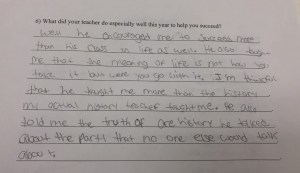 6) What did your teacher do especially well this year to help you succeed?
Well he encourages me to succeed more
than his class in life as well. He also told
me that the meaning of life is not how you
take it but were you go with it. I'm thankful
that he taught me more than the history
my usual history teacher taught me. He also
told me the truth of are history he talked
about the parts that no one else would talk
about.